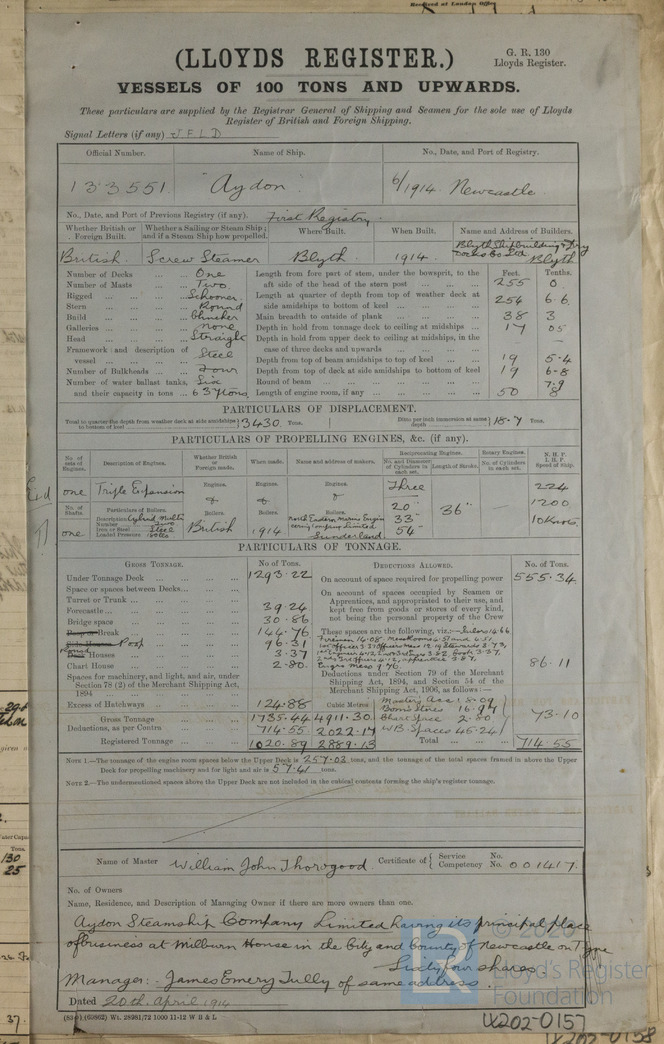 Received at London Office
(LLOYDS REGISTER.)
G. R. 130
Lloyds Register.
VESSELS OF 100 TONS AND UPWARDS.
These particulars are supplied by the Registrar General of Shipping and Seamen for the sole use of Lloyds
Register of British and Foreign Shipping.
Signal Letters (if any) J F L D
Official Number. Name of Ship. No., Date, and Port of Registry.
133551. "Aydon". 6/1914. Newcastle.
No., Date, and Port of Previous Registry (if any). First Registry.
Whether British or Foreign Built. Whether a Sailing or Steam Ship; and if a Steam Ship how propelled. Where Built. When Built. Name and Address of Builders.
British. Screw Steamer Blyth 1914. Blyth Shipbuilding & Dry Docks Co Ltd Blyth
Number of Decks One
Number of Masts Two
Rigged Schooner
Stern Round
Build Clincher
Galleries none
Head Straight
Framework and description of vessel Steel
Number of Bulkheads Four
Number of water ballast tanks, Six
and their capacity in tons 637 tons
Feet. Tenths.
Length from fore part of stem, under the bowsprit, to the aft side of the head of the stern post 255 0
Length at quarter of depth from top of weather deck at side amidships to bottom of keel 254 6.6
Main breadth to outside of plank 38 3
Depth in hold from tonnage deck to ceiling at midships 17 05
Depth in hold from upper deck to ceiling at midships, in the case of three decks and upwards —
Depth from top of beam amidships to top of keel 19 5.4
Depth from top of deck at side amidships to bottom of keel 19 6.8
Round of beam 7.9
Length of engine room, if any 50 8
PARTICULARS OF DISPLACEMENT.
Total to quarter the depth from weather deck at side amidships to bottom of keel 3430. Tons. Ditto per inch immersion at same depth 18.7 Tons.
PARTICULARS OF PROPELLING ENGINES, &c. (if any).
No. of sets of Engines. Description of Engines. Whether British or Foreign made. When made. Name and address of makers. Reciprocating Engines. No. and Diameter of Cylinders in each set. Length of Stroke. Rotary Engines. No. of Cylinders in each set. N. H. P. I. H. P. Speed of Ship.
one Triple Expansion Engines. Engines. Engines. Three 224
No. of Shafts. Particulars of Boilers. Boilers. Boilers. Boilers. 20" 36" 1200
one Description Cylind. Multi Number Two Iron or Steel Steel Loaded Pressure British 1914 North Eastern Marine Engineering Company Limited Sunderland. 33" 54" 10 Knots.
PARTICULARS OF TONNAGE.
GROSS TONNAGE. No. of Tons. DEDUCTIONS ALLOWED. No. of Tons.
Under Tonnage Deck 1293.22
Space or spaces between Decks
Turret or Trunk
Forecastle 39.24
Bridge space 30.86
Break 144.76
Poop 96.31
Houses 3.37
Chart House 2.80
Spaces for machinery, and light, and air, under Section 78 (2) of the Merchant Shipping Act, 1894
Excess of Hatchways 124.88
Gross Tonnage 1735.44 4911.30
Deductions, as per Contra 714.55 2022.17
Registered Tonnage 1020.89 2889.13
Cubic Metres
On account of space required for propelling power 555.34
On account of spaces occupied by Seamen or Apprentices, and appropriated to their use, and kept free from goods or stores of every kind, not being the personal property of the Crew
These spaces are the following, viz:— Sailors 14.66
86.11
Deductions under Section 79 of the Merchant Shipping Act, 1894, and Section 54 of the Merchant Shipping Act, 1906, as follows:—
Master's Acc 8.09
Bosn's Stores 16.97
Chart Space 2.80
W.B. Spaces 45.24
73.10
Total 714.55
NOTE 1.—The tonnage of the engine room spaces below the Upper Deck is 257.02 tons, and the tonnage of the total spaces framed in above the Upper
Deck for propelling machinery and for light and air is 57.41 tons.
NOTE 2.—The undermentioned spaces above the Upper Deck are not included in the cubical contents forming the ship's register tonnage.
Name of Master William John Thorogood. Certificate of Service Competency No. No. 001417.
No. of Owners
Name, Residence, and Description of Managing Owner if there are more owners than one.
Aydon Steamship Company Limited having its principal place
of business at Milburn House in the City and County of Newcastle on Tyne
Sixty four shares
Manager: James Emery Tully of same address.
Dated 20th April 1914
(63862) Wt. 28981/72 1000 11-12 W B & L
© 2020
Lloyd's Register
Foundation
LR
LX202-0157
LX202-0158
130
25
37.